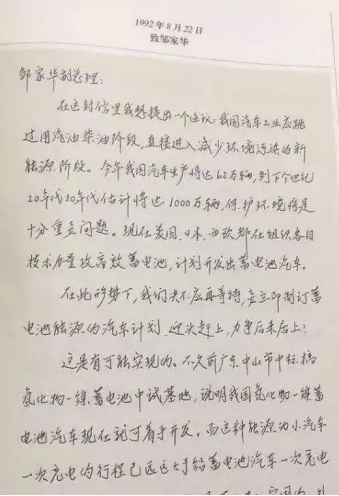 1992年8月22日
致邹家华
邹家华副总理：
在这封信里我想提出一个建议：我国汽车工业应跳
过用汽油柴油阶段，直接进入减少环境污染的新
能源阶段。今年我国汽车生产将达65万辆，到下个世纪
20年代30年代估计将达1000万辆，保护环境将是
十分重要问题。现在美国、日本、西欧都在组织各自
技术力量攻高效蓄电池，计划开发出蓄电池汽车。
在此形势下，我们决不应再等待，应立即制订蓄
电池能源的汽车计划，迎头赶上，力争后来居上！
这是有可能实现的。不久前广东中山市中标搞
氢化物—镍蓄电池中试基地，说明我国氢化物—镍蓄
电池汽车现在就可着手开发。而这种能源为小汽车
一次充电的行程已远远大于铅蓄电池汽车一次充电